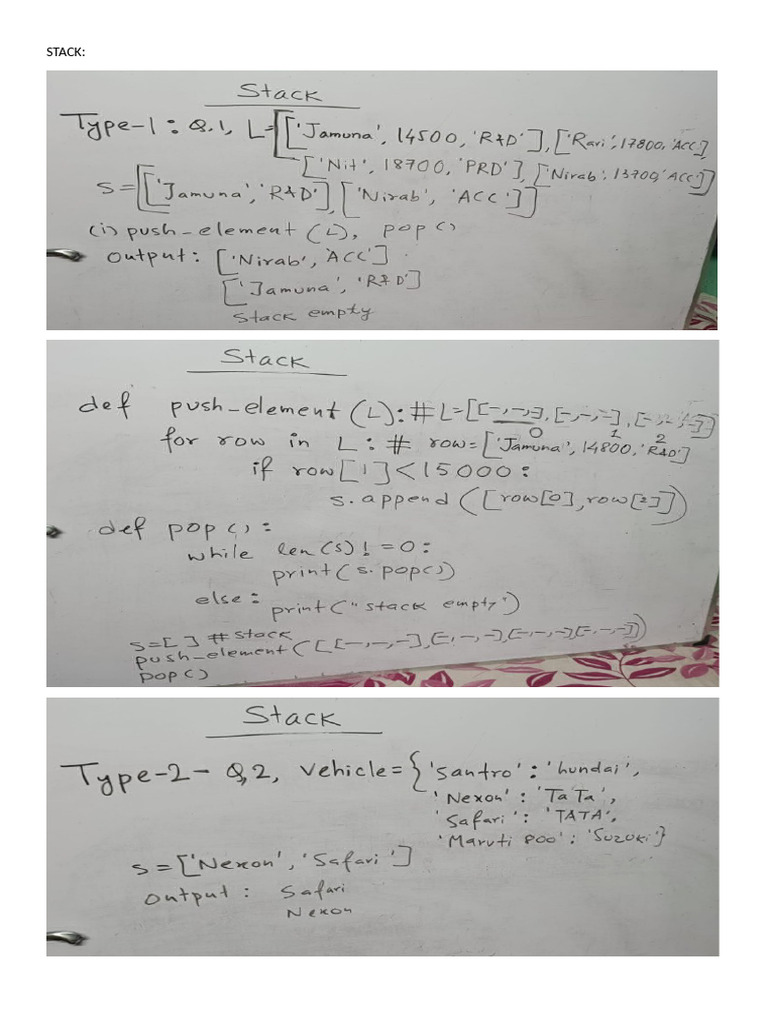 STACK:
Stack
Type-1: Q.1, L=[['Jamuna', 14500, 'R&D'], ['Ravi', 17800, 'ACC'],
['Nit', 18700, 'PRD'], ['Nirab', 13700, 'ACC']]
S=[['Jamuna', 'R&D'], ['Nirab', 'ACC']]
(i) push-element (L), pop()
output: ['Nirab', 'ACC']
['Jamuna', 'R&D']
Stack empty
Stack
def push-element (L): # L=[[-,-,-], [-,-,-], [-,-,-]]
0 1 2
for row in L: # row=['Jamuna', 14800, 'R&D']
if row[1]<15000:
s.append([row[0],row[2]])
def pop():
while len(s)!=0:
print(s.pop())
else:
print("stack empty")
s=[] # stack
push-element([[-,-,-],[-,-,-],[-,-,-],[-,-,-]])
pop()
Stack
Type-2- Q2, Vehicle={'Santro':'hundai',
'Nexon': 'TaTa',
'Safari': 'TATA',
'Maruti 800': 'Suzuki'}
s=['Nexon', 'Safari']
output: Safari
Nexon